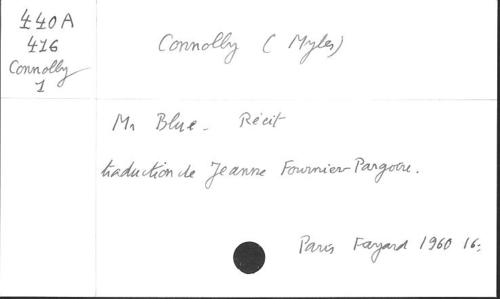 440A
416
Connolly
1
Connolly (Myles)
Mr Blue. Récit
traduction de Jeanne Fournier-Pargoire.
Paris Fayard 1960 16: